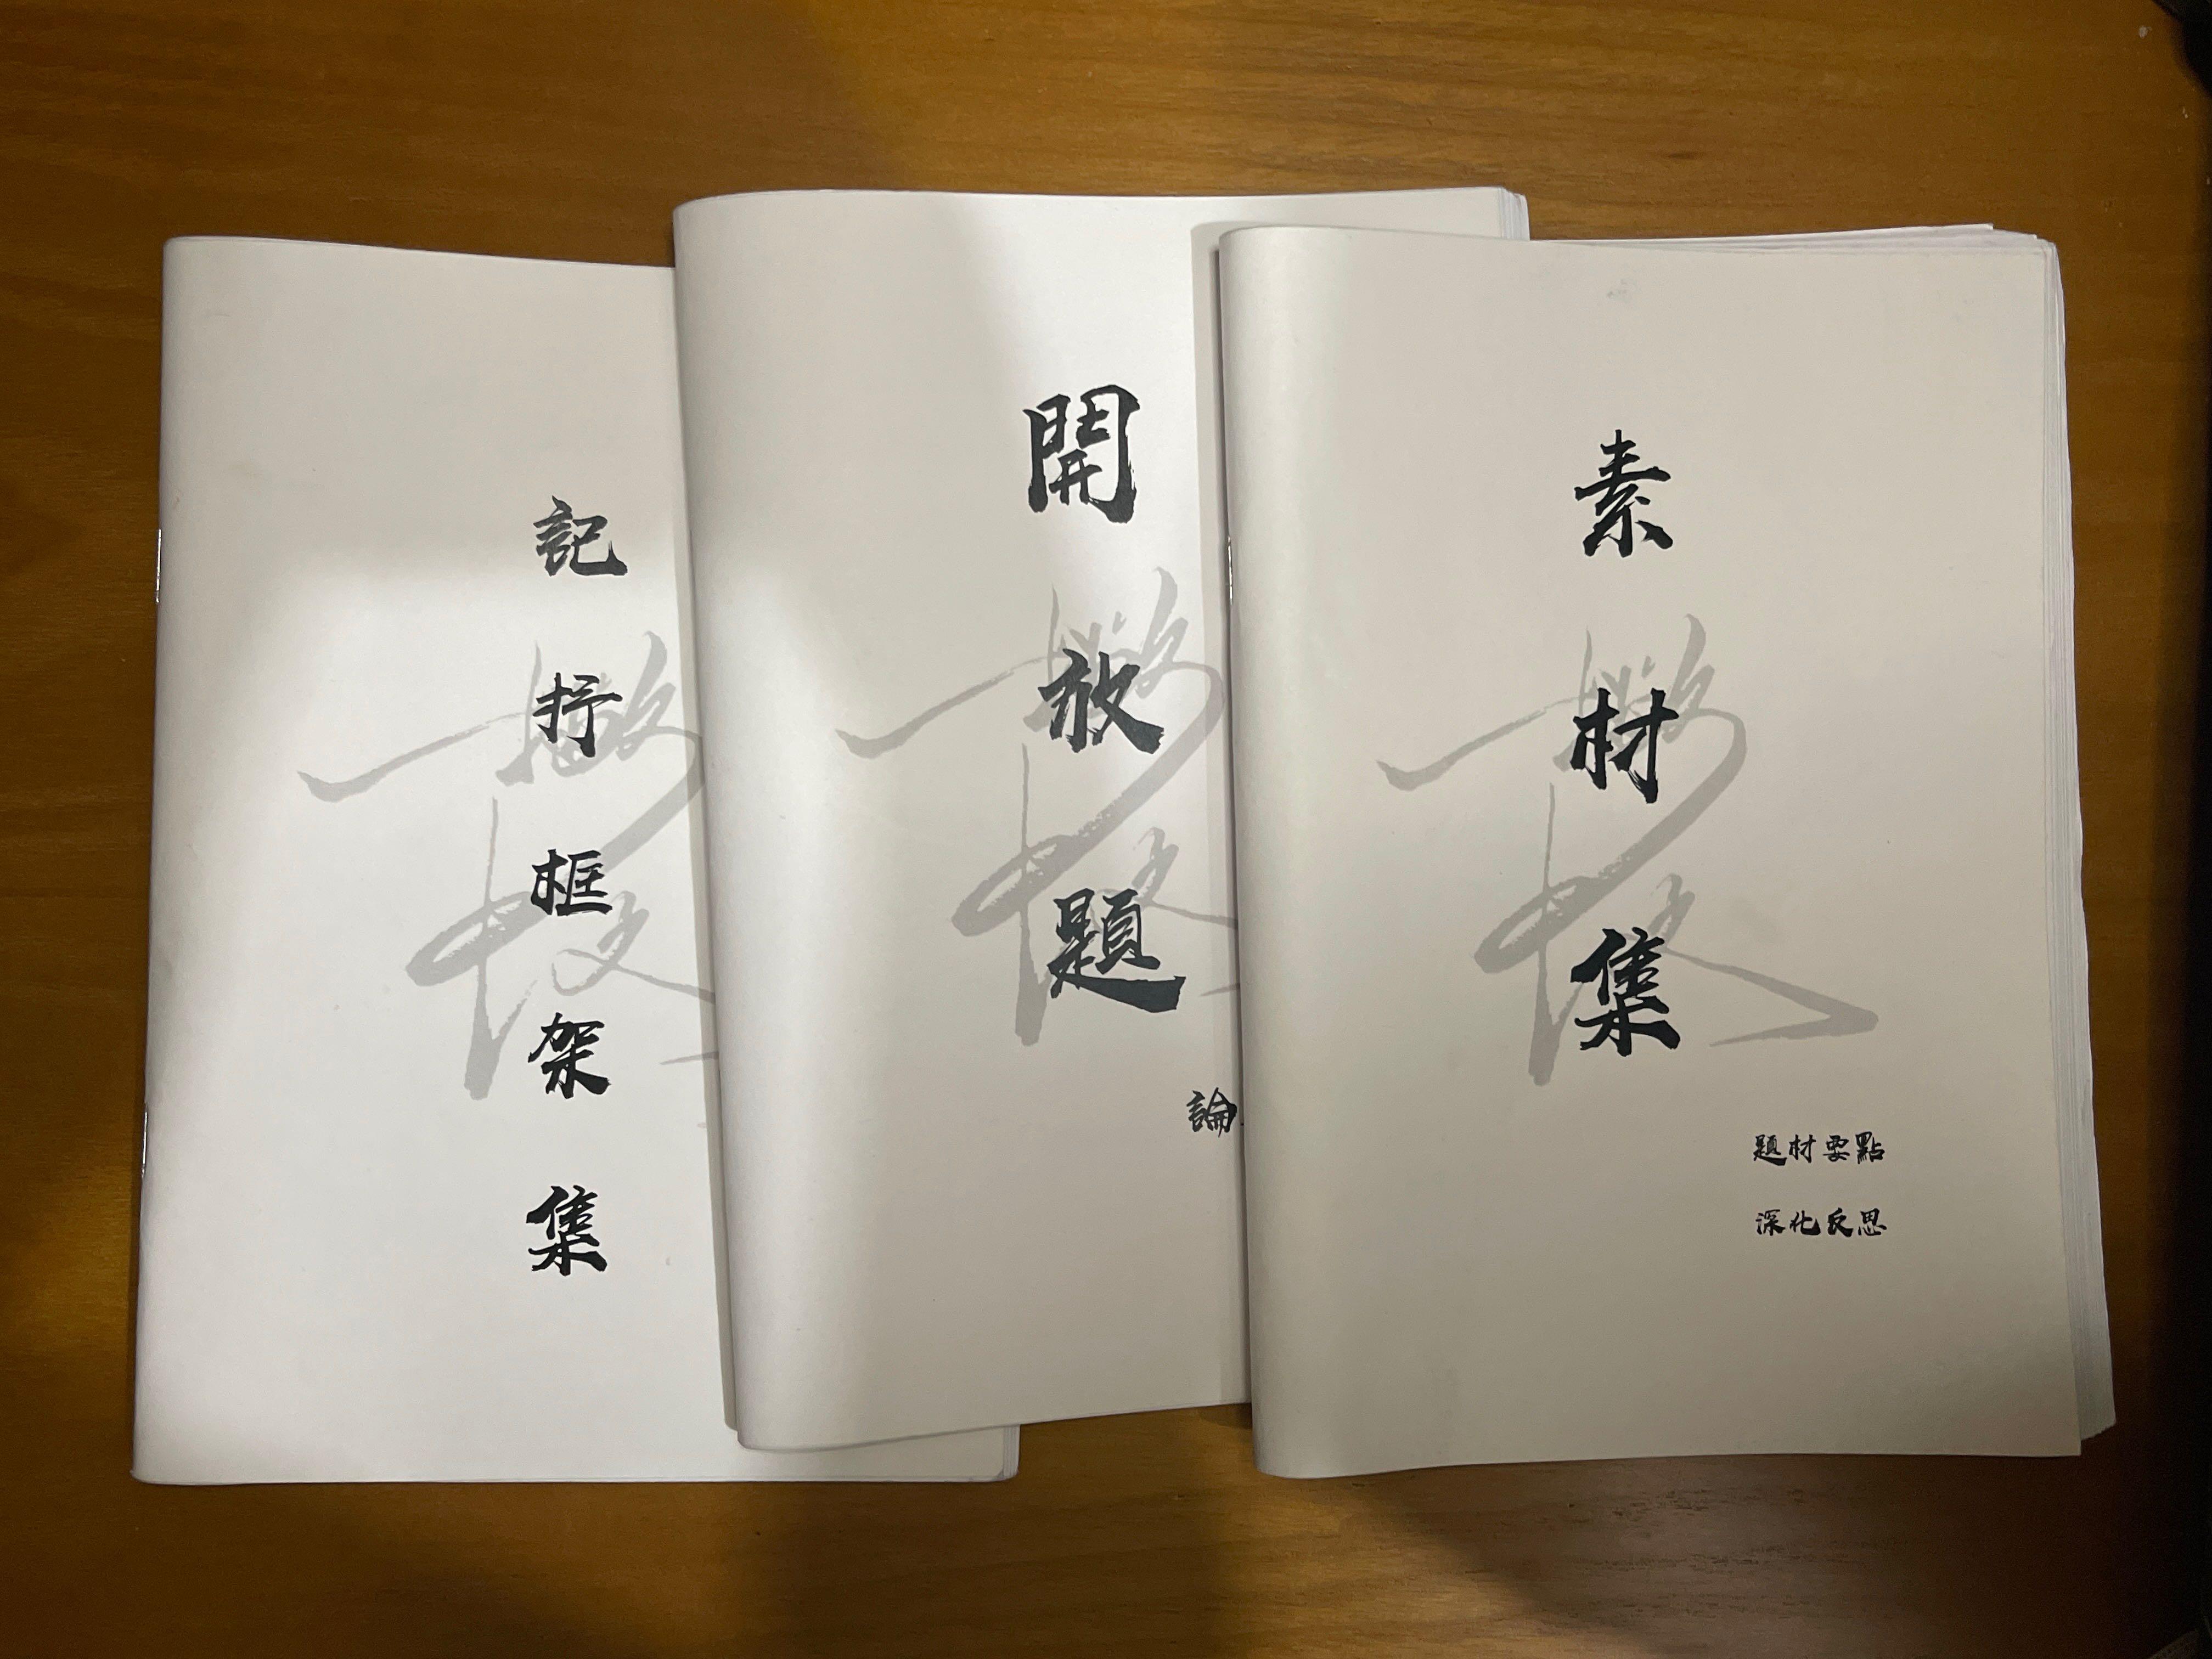 記抒框架集
開放題
論
素材集
題材要點
深化反思